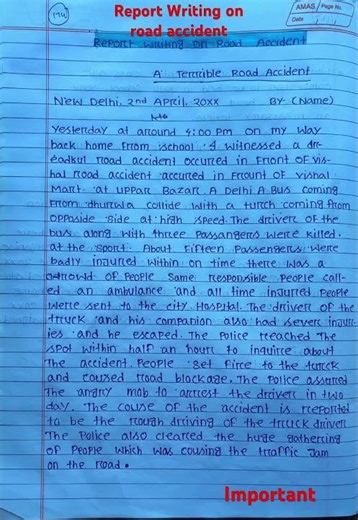 Report Writing on
road accident
(194)
AMAS Page No.
Date
Report writing on Road Accident
A Terrrible Road Accident
New Delhi, 2nd April, 20XX By (Name)
Yesterday at around 4:00 Pm on my way
back home from school I witnessed a dr-
eadkul road accident occurred in Front of vis-
hal road accident accurred in Frount of vishal
Mart at uppar Bazar. A Delhi A Bus coming
From dhurwa collide with a turck coming from
opposide side at high speed. The driver of the
bus along with three Passangers were killed.
at the sport. About Fifteen Passengers were
badly injured within on time there was a
crowd of People Same responsible People call-
ed an ambulance and all time injured People
were sent to the city Hospital. The driver of the
truck and his companion also had severe injur-
ies and he escaped. The Police reached The
spot within half an hour to inquire about
The accident People set Fire to the turck
and coused road blockage. The Police assured
The angry mob to arrest the driver in two
day. The couse of the accident is reported
to be the rough driving of the truck driver
The Police also cleared the huge gathering
of People which was cousing the traffic Jam
on the road.
Important